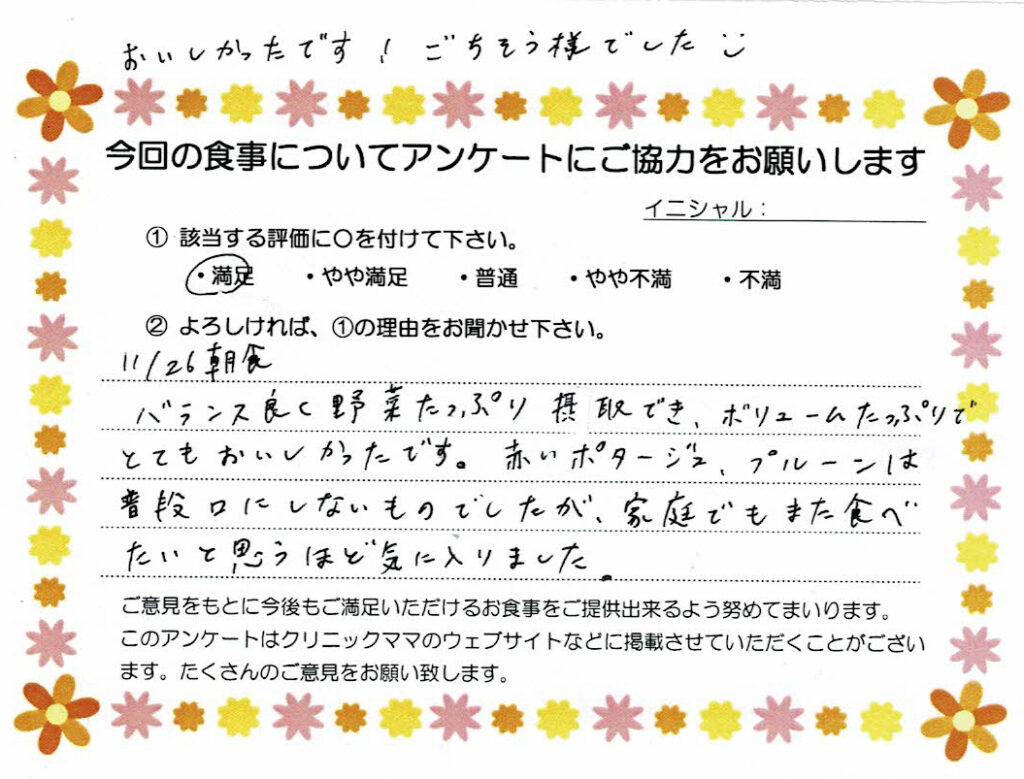 おいしかったです！ごちそう様でした
今回の食事についてアンケートにご協力をお願いします
イニシャル：
① 該当する評価に〇を付けて下さい。
・満足 ・やや満足 ・普通 ・やや不満 ・不満
② よろしければ、①の理由をお聞かせ下さい。
11/26 朝食
バランス良く野菜たっぷり摂取でき、ボリュームたっぷりで
とてもおいしかったです。赤いポタージュ、プルーンは
普段口にしないものでしたが、家庭でもまた食べ
たいと思うほど気に入りました。
ご意見をもとに今後もご満足いただけるお食事をご提供出来るよう努めてまいります。
このアンケートはクリニックママのウェブサイトなどに掲載させていただくことがござい
ます。たくさんのご意見をお願い致します。